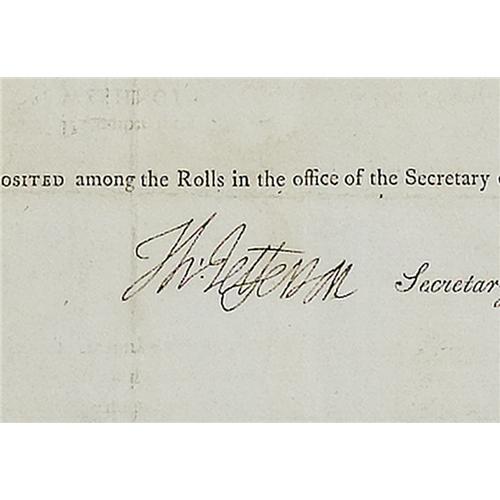 OSITED among the Rolls in the office of the Secretary
Th: Jefferson Secretar